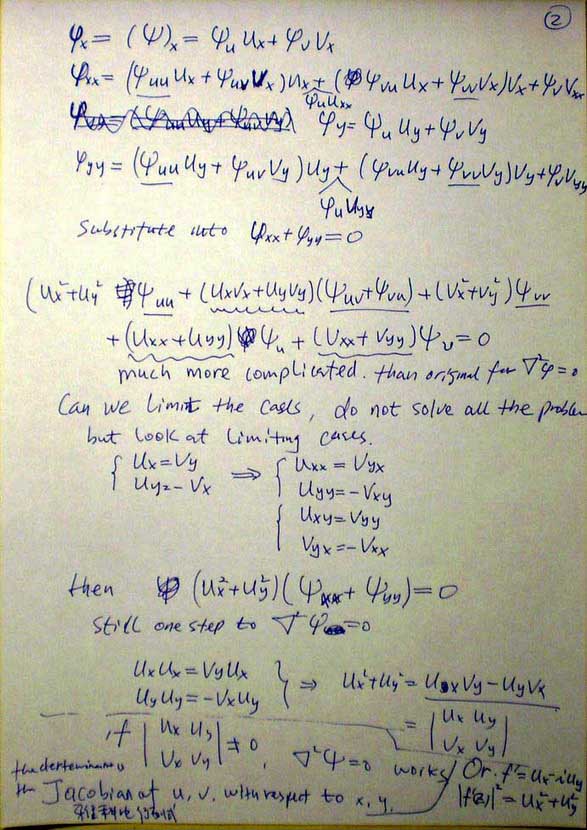 ②
φx = (ψ)x = ψu ux + ψv vx
φxx = (ψuu ux + ψuv vx) ux + ψu uxx + (ψvu ux + ψvv vx) vx + ψv vxx
φy = ψu uy + ψv vy
φyy = (ψuu uy + ψuv vy) uy + ψu uyy + (ψvu uy + ψvv vy) vy + ψv vyy
Substitute into φxx + φyy = 0
(ux² + uy² ψuu + (ux vx + uy vy)(ψuv + ψvu) + (vx² + vy²) ψvv
+ (uxx + uyy) ψu + (vxx + vyy) ψv = 0
much more complicated. than original for ∇²φ = 0
Can we limit the cases, do not solve all the problem
but look at limiting cases.
{ ux = vy ⇒ { uxx = vyx
uy = -vx uyy = -vxy
{ uxy = vyy
vyx = -vxx
then (ux² + uy²)(ψxx + ψyy) = 0
still one step to ∇²φ = 0
ux ux = vy ux
uy uy = -vx uy } ⇒ ux² + uy² = ux vy - uy vx
= | ux uy |
| vx vy |
if | ux uy |
| vx vy | ≠ 0, ∇²ψ = 0 works
Or. f' = ux - i uy
|f'(z)|² = ux² + uy²
the determinant
the Jacobian of u, v. with respect to x, y.